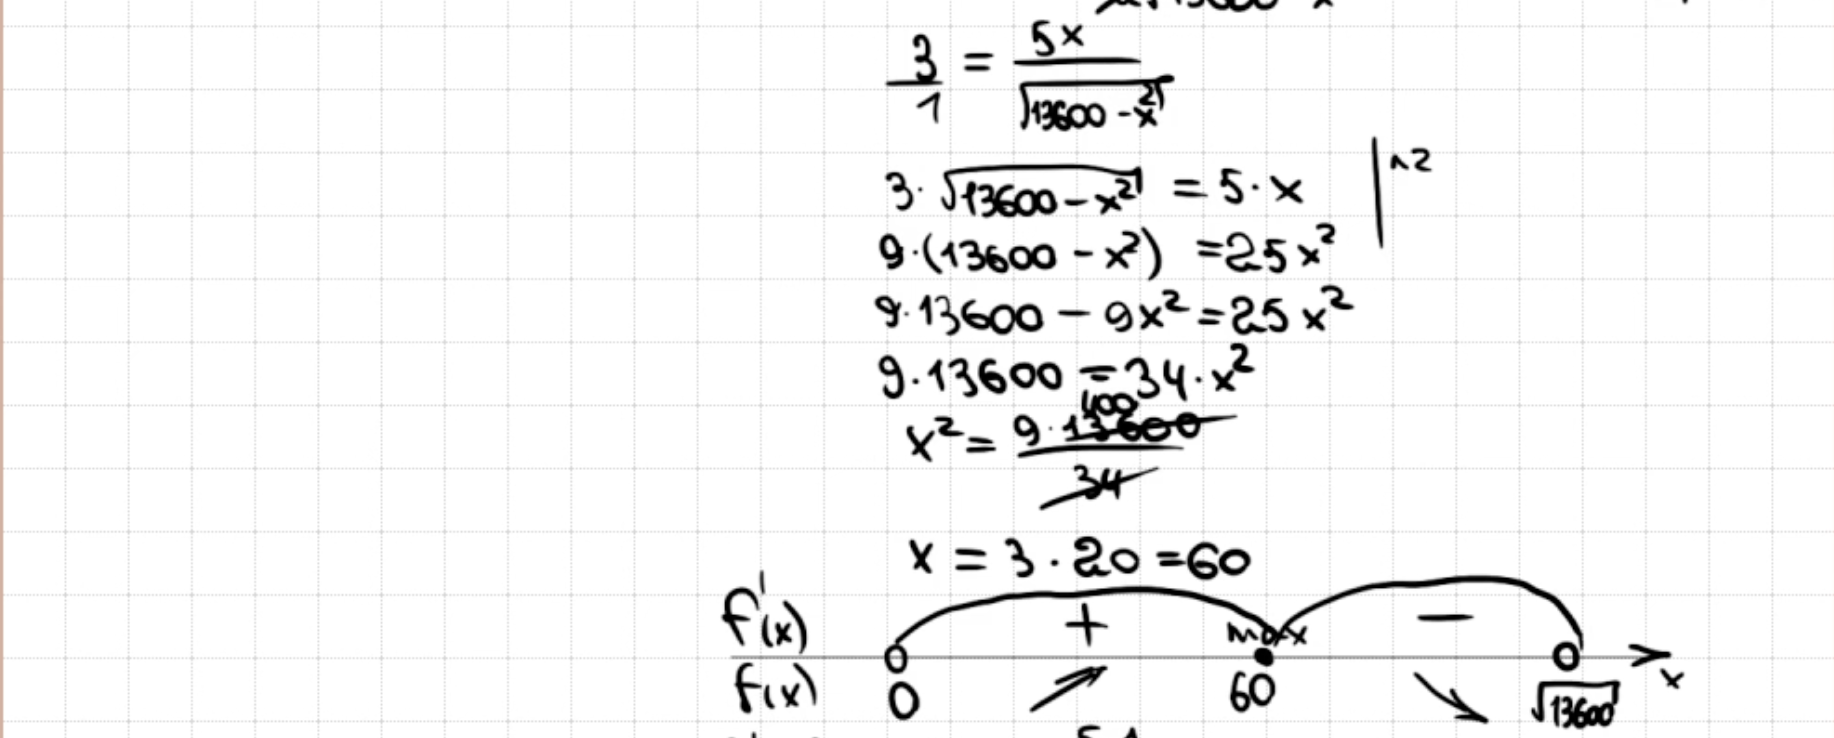 3/1 = 5x/√(13600-x²)
3·√(13600-x²) = 5·x |^2
9·(13600-x²) = 25x²
9·13600 - 9x² = 25x²
9·13600 = 34·x²
400
x² = 9·13600/34
x = 3·20 = 60
f'(x) + max −
f(x) 0 60 √13600 x